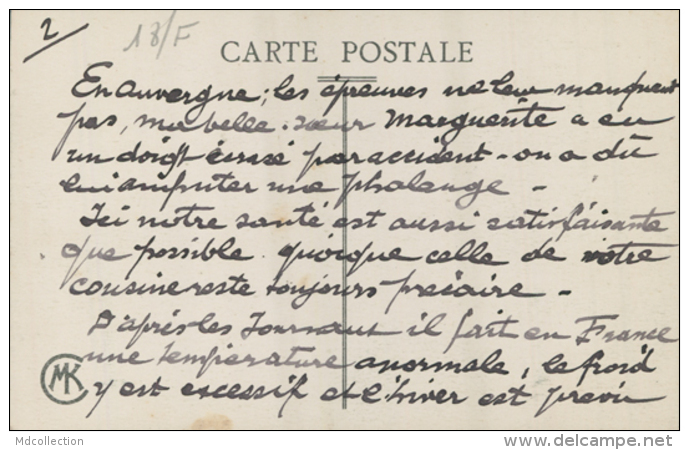 2
18/F
CARTE POSTALE
En Auvergne, les épreuves ne leur manquent
pas, ma belle-soeur Marguerite a eu
un doigt écrasé par accident - on a dû
lui amputer une phalange -
Ici notre santé est aussi satisfaisante
que possible quoique celle de votre
cousine reste toujours précaire -
D'après les Journaux il fait en France
une température anormale, le froid
y est excessif et l'hiver est prévu
MK
Mdcollection
delcampe.net